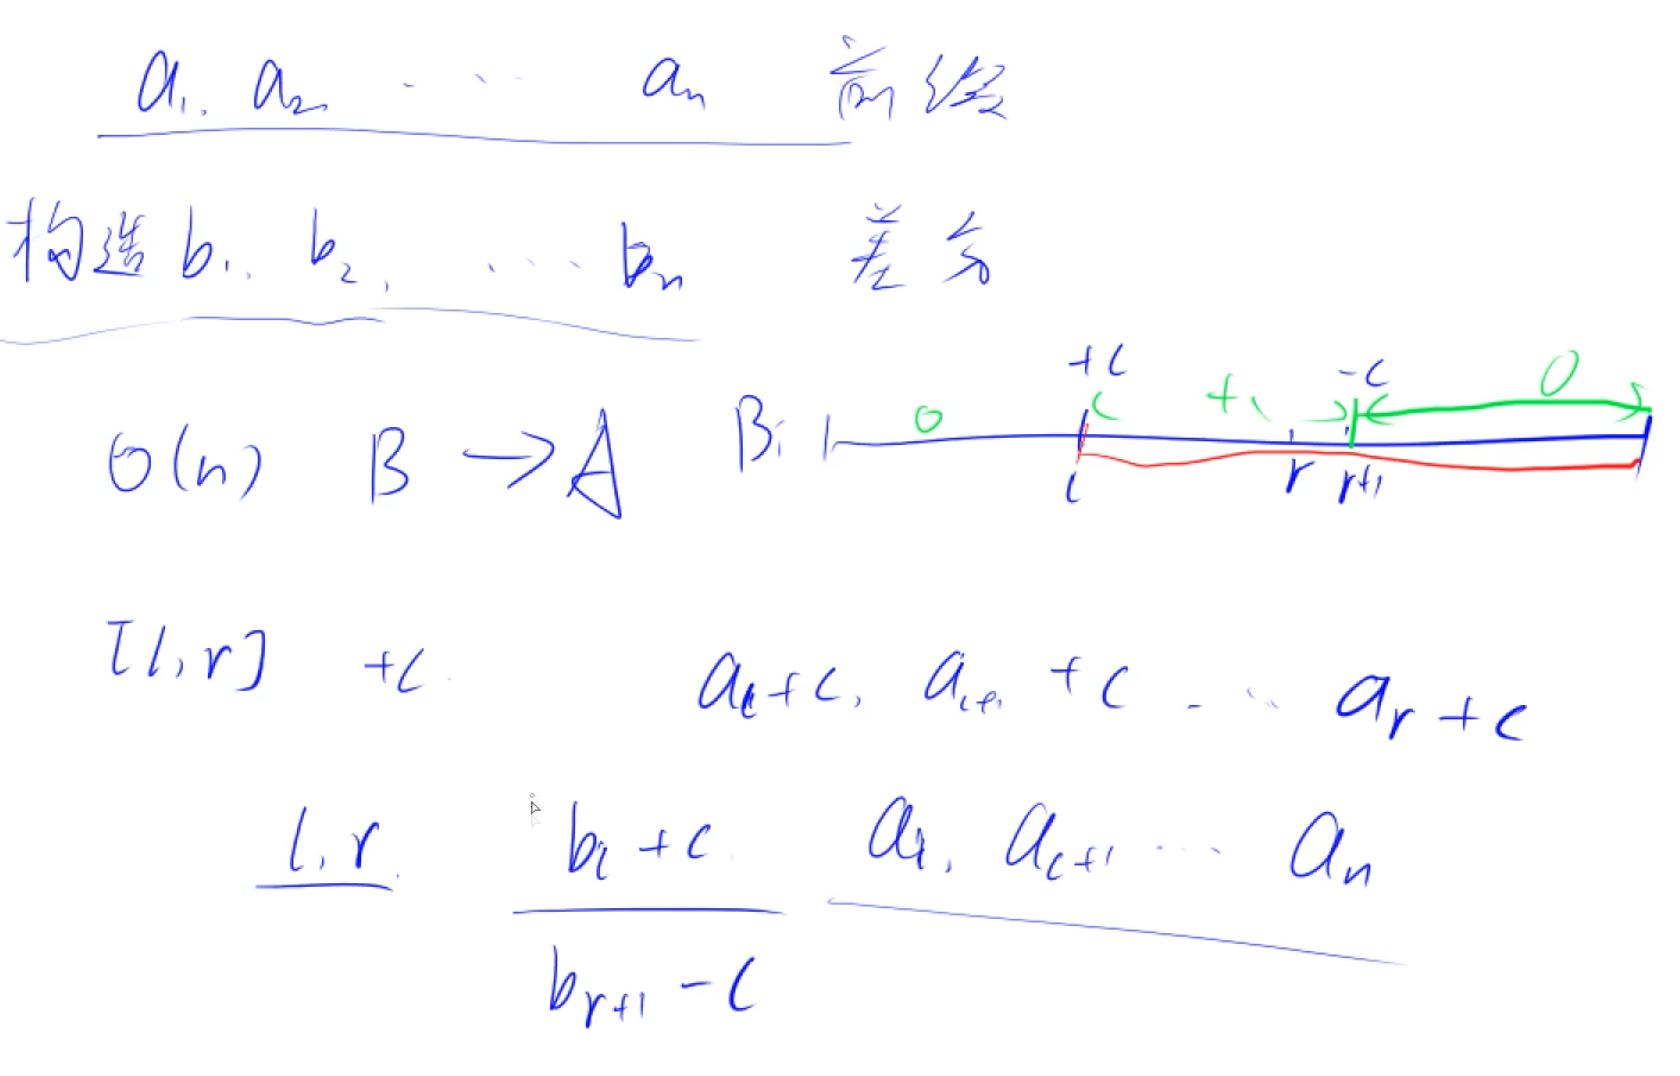 a₁, a₂ ... aₙ 前缀
构造 b₁, b₂, ... bₙ 差分
+c -c
0 +c 0
O(n) B → A B:
l r r+1
[l, r] +c a_l+c, a_{l+1}+c ... a_r+c
l, r b_l+c a_l, a_{l+1} ... aₙ
b_{r+1}-c